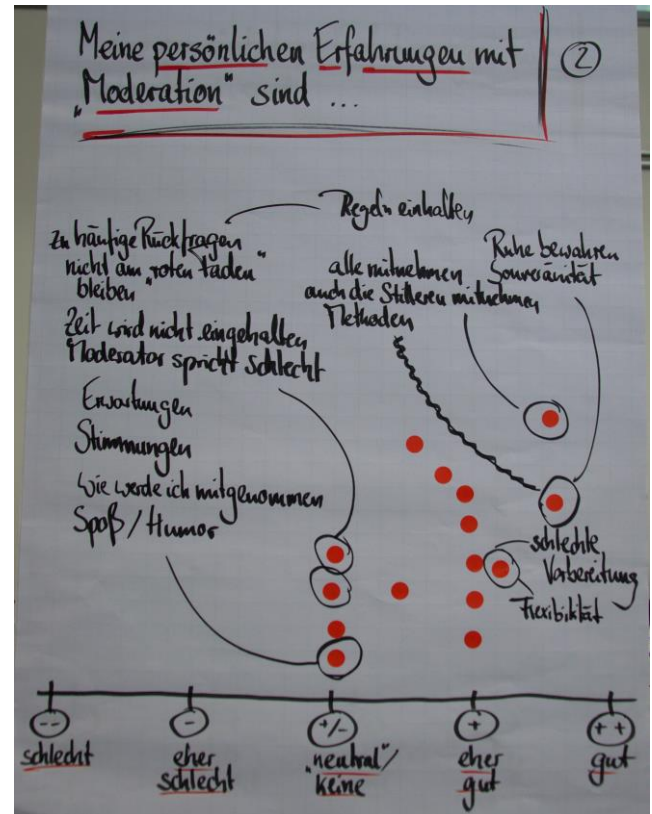 Meine persönlichen Erfahrungen mit
„Moderation“ sind ...
2
Regeln einhalten
Zu häufige Rückfragen
nicht am „roten Faden“
bleiben
Zeit wird nicht eingehalten
Moderator spricht schlecht
Erwartungen
Stimmungen
Wie werde ich mitgenommen
Spaß / Humor
alle mitnehmen
auch die Stilleren mitnehmen
Methoden
Ruhe bewahren
Souveränität
schlechte
Vorbereitung
Flexibilität
--
schlecht
-
eher
schlecht
+/-
"neutral"/
keine
+
eher
gut
++
gut